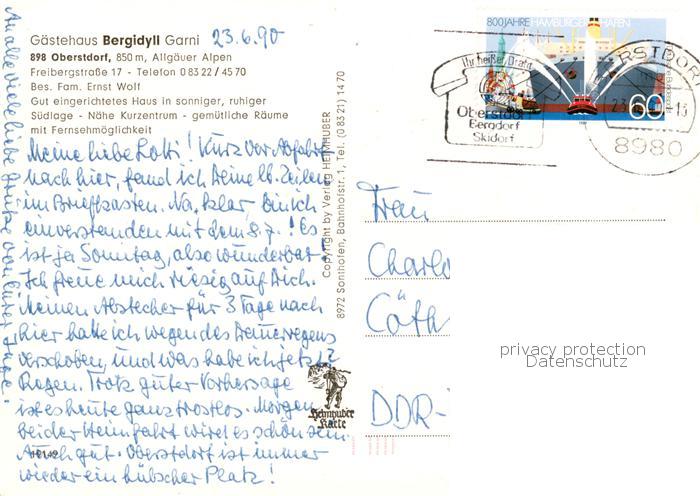 Gästehaus Bergidyll Garni 23.6.90
898 Oberstdorf, 850 m, Allgäuer Alpen
Freibergstraße 17 - Telefon 0 83 22 / 45 70
Bes. Fam. Ernst Wolf
Gut eingerichtetes Haus in sonniger, ruhiger
Südlage - Nähe Kurzentrum - gemütliche Räume
mit Fernsehmöglichkeit
Meine liebe Lotti! Kurz vor Abfahrt
nach hier, fand ich Deine lb. Zeilen
im Briefkasten. Na, klar, bin ich
einverstanden mit dem 8.7.! Es
ist ja Sonntag, also wunderbar!
Ich freue mich riesig auf Dich.
Meinen Abstecher für 3 Tage nach
hier hatte ich wegen des Dauerregens
verschoben, und was habe ich jetzt?
Regen. Trotz guter Vorhersage
ist es heute ganz trostlos. Morgen
bei der Heimfahrt wird es schön sein.
Auch gut. Oberstdorf ist immer
wieder ein hübscher Platz!
An alle viele liebe Grüße von Eurer Inge!
Copyright by Verlag HEIMHUBER
8972 Sonthofen, Bahnhofstr. 1, Tel. (0 83 21) 14 70
Heimhuber
Karte
800 JAHRE HAMBURGER HAFEN
60
Ihr heißer Draht
Oberstdorf
Bergdorf
Skidorf
RSTDORF
8980
Frau
Charlo
Cöth
DDR-
privacy protection
Datenschutz